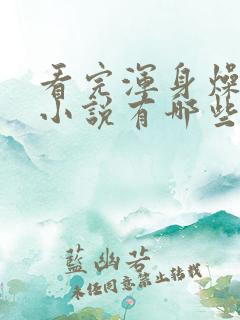 看完浑身燥
小说有哪些
蓝幽若
未经同意禁止转载